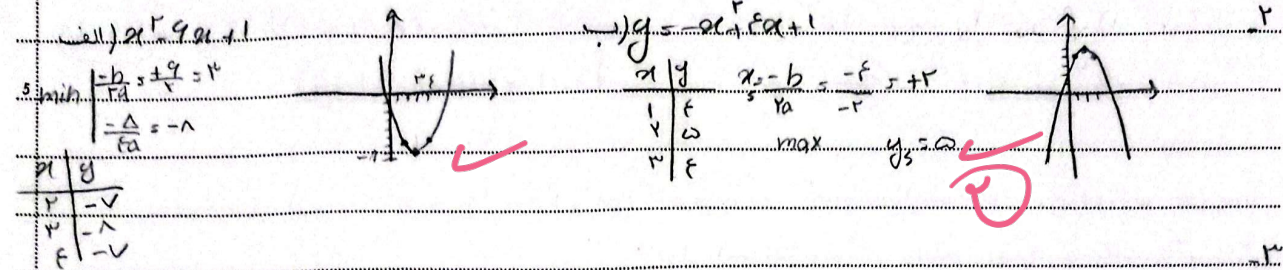 ۲-
الف) x² - ۶x + ۱
min | -b/۲a = +۶/۲ = ۳
-Δ/۴a = -۸
x | y
۲ | -۷
۳ | -۸
۴ | -۷
ب) y = -x² + ۴x + ۱
x | y
۱ | ۴
۲ | ۵
۳ | ۴
xₛ = -b/۲a = -۴/-۲ = +۲
max yₛ = ۵
۲
۳ ۴
-۸
5
۳-